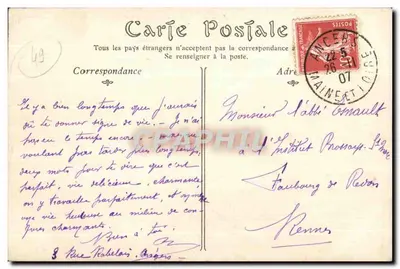 Carte Postale
Tous les pays étrangers n'acceptent pas la correspondance a
Se renseigner à la poste.
Correspondance
Adr
49
POSTES
ANGERS
22 5
07
MAINE ET LOIRE
Il y a bien longtemps que j'aurais
dû te donner signe de vie. Je n'ai
pas eu le temps encore
voulant pas tarder plus longtemps,
deux mots pour te dire que c'est
parfait, vie délicieuse, charmante
on y travaille parfaitement, et
une vie heureuse au milieu de con
frères charmants.
Bien à toi
3 Rue Rabelais Angers
Monsieur l'abbé
à l'Institut
Faubourg de Redon
Rennes